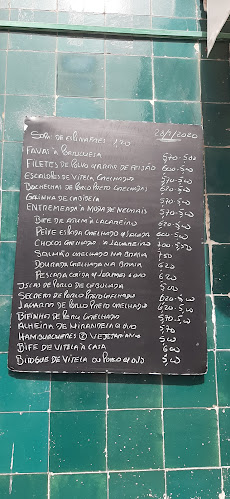 Sopa de Espinafres 1,20 20/7/2020
Favas à Portuguesa 5,70-5,00
Filetes de Polvo c/ Arroz de Feijão 6,00-5,00
Escalopes de Vitela Grelhados 5,70-5,00
Bochechas de Porco Preto Grelhadas 6,20-5,00
Galinha de Cabidela 5,70-5,00
Entremeada à Moda de Nelhais 5,70-5,00
Bife de Atum à Lagareiro 6,20
Peixe Espada Grelhado
Choco Grelhado à Lagareiro
Salmão Grelhado na Brasa 7,00
Dourada Grelhada na Brasa 6,20
Pescada Cozida 6,20
Iscas de Porco de Cebolada 5,00
Secretos de Porco Preto Grelhado 6,20-5,00
Lagarto de Porco Preto Grelhado 6,20-5,00
Bifinho de Peru Grelhado 5,70-5,00
Alheira de Mirandela c/ ovo 5,70
Hamburgueres (2) Vegetarianos 5,00
Bife de Vitela à Casa 6,00
Bitoque de Vitela ou Porco c/ ovo 5,00